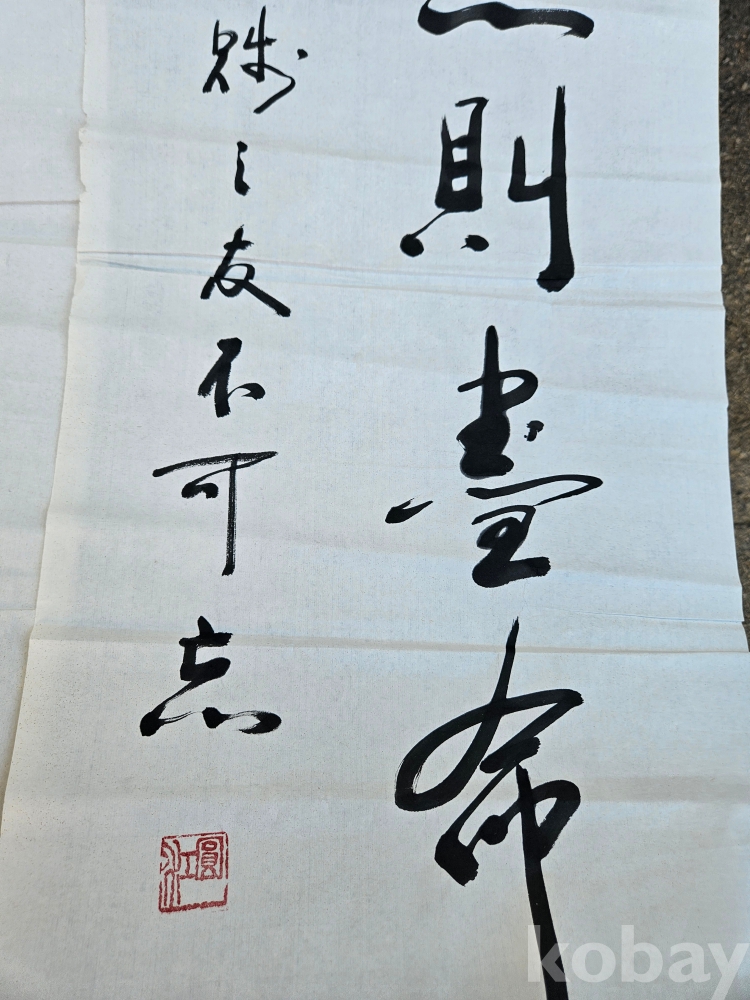 則盡命
賤之友不可忘
kobay